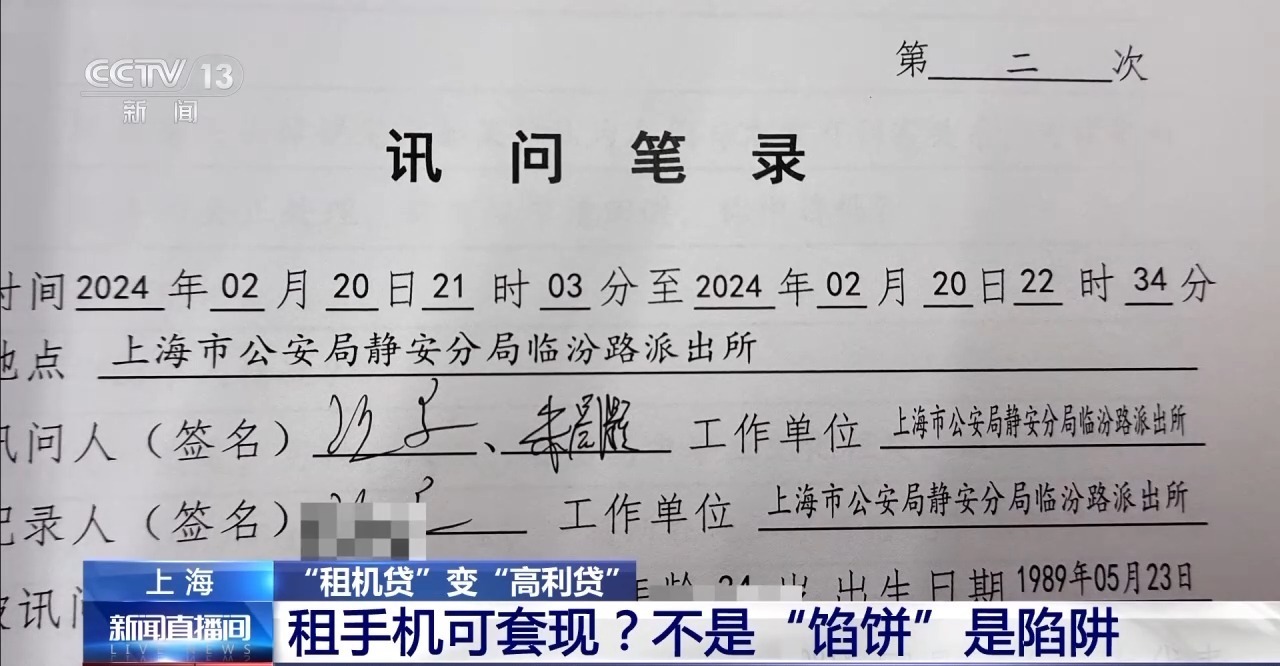 CCTV 13
新闻
第 二 次
讯问笔录
时间 2024 年 02 月 20 日 21 时 03 分至 2024 年 02 月 20 日 22 时 34 分
地点 上海市公安局静安分局临汾路派出所
讯问人（签名） 、 工作单位 上海市公安局静安分局临汾路派出所
记录人（签名） 工作单位 上海市公安局静安分局临汾路派出所
被讯问 出生日期 1989年05月23日
上海 “租机贷”变“高利贷”
新闻直播间
LIVE NEWS
租手机可套现？不是“馅饼”是陷阱